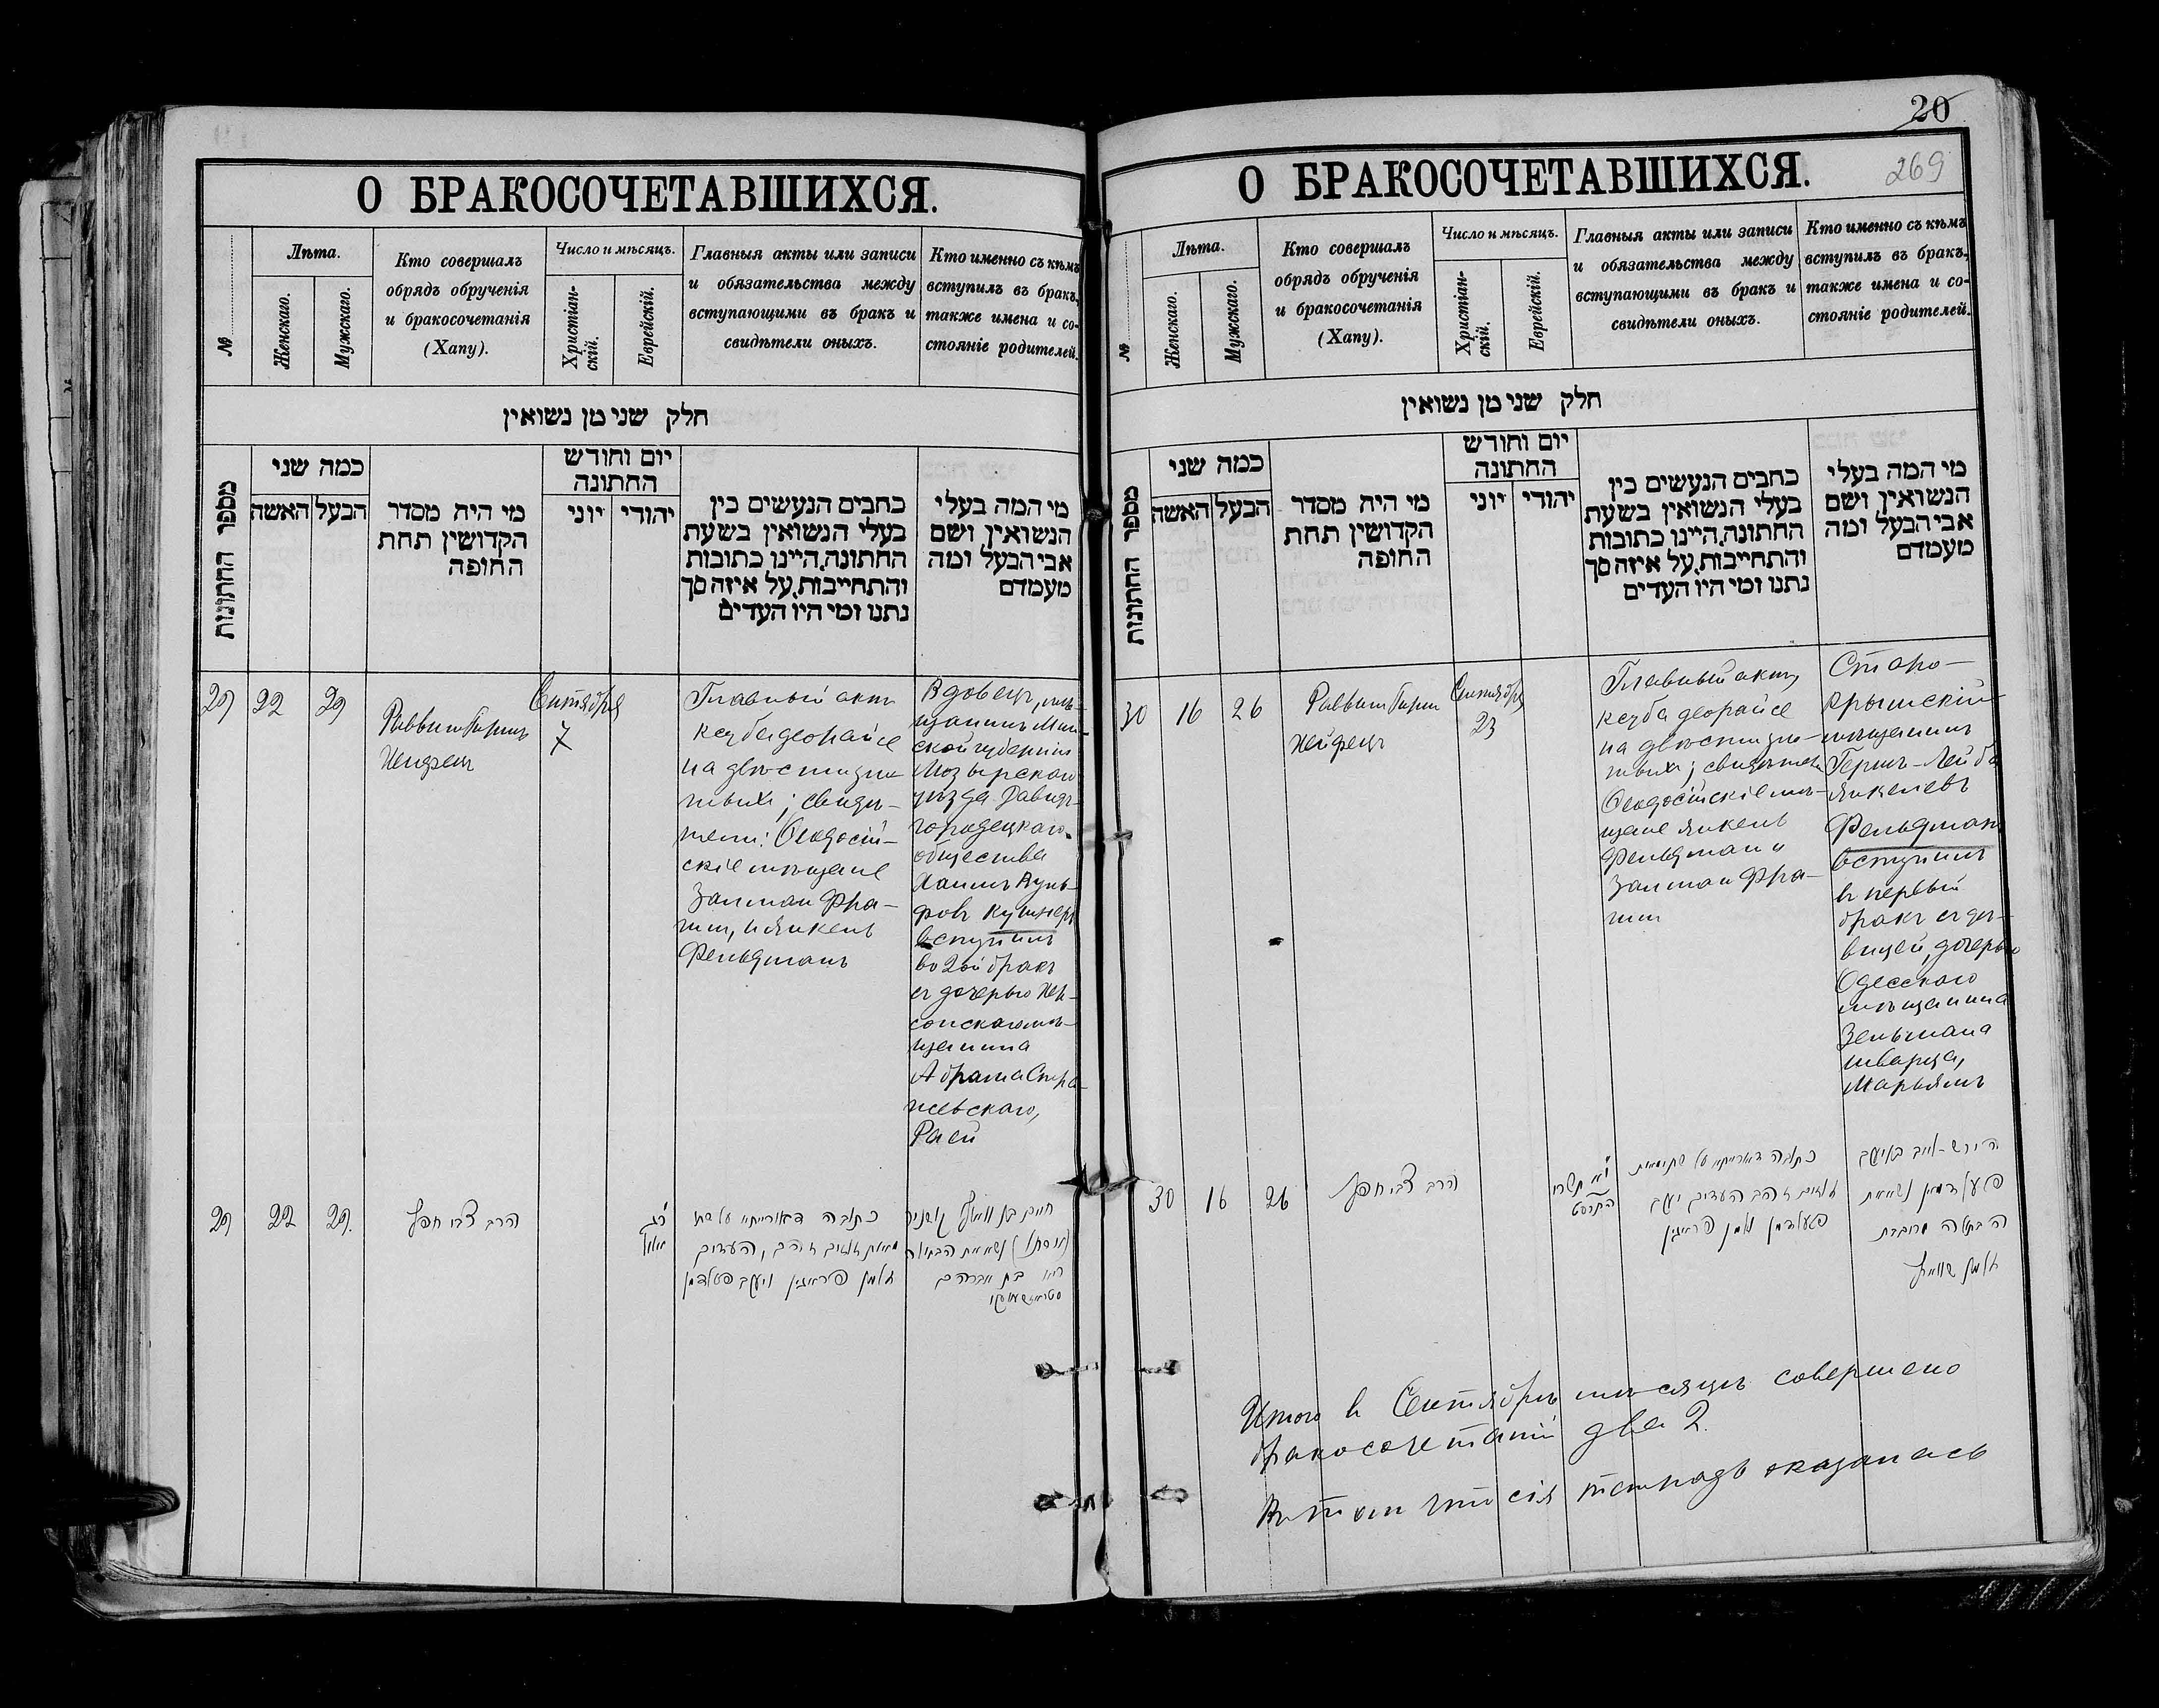 О БРАКОСОЧЕТАВШИХСЯ.
№
Лѣта.
Женскаго.
Мужскаго.
Кто совершалъ
обрядъ обрученія
и бракосочетанія
(Хапу).
Число и мѣсяцъ.
Христіан-
скій.
Еврейскій.
Главныя акты или записи
и обязательства между
вступающими въ бракъ и
свидѣтели оныхъ.
Кто именно съ кѣмъ
вступилъ въ бракъ,
также имена и со-
стояніе родителей.
חלק שני מן נשואין
מספר החתונות
כמה שני
הבעל האשה
מי היה מסדר
הקדושין תחת
החופה
יום וחודש
החתונה
יהודי יוני
כתבים הנעשים בין
בעלי הנשואין בשעת
החתונה, היינו כתובות
והתחייבות, על איזה סך
נתנו ומי היו העדים
מי המה בעלי
הנשואין ושם
אבי הבעל ומה
מעמדם
29 22 29
Раввинъ Гиршъ
Хейфецъ
Сентября
7
Главный актъ
кеуба деорайсе
на двѣсти зло-
тыхъ; свидѣ-
тели: Ѳеодосій-
скіе мѣщане
Залман Фра-
, и Янкель
Фельдманъ
Вдовецъ, мѣ-
щанинъ Мин-
ской губерніи
Мозырскаго
уѣзда Давидъ-
городецкаго
общества
Хаимъ Вуль-
фовъ Кушнеръ
вступилъ
во 2ой бракъ
съ дочерью Хер-
сонскаго мѣ-
щанина
Абрама
Раей
29 22 29.
הרב צבי חפץ
כ״ג
אלול
כתובה דאורייתא על שתי
מאות זהובים, העדים
זלמן ויעקב פעלדמן
חיים בן וואלף קושניר
נשא את הבתולה
בת אברהם
20
269
О БРАКОСОЧЕТАВШИХСЯ.
№
Лѣта.
Женскаго.
Мужскаго.
Кто совершалъ
обрядъ обрученія
и бракосочетанія
(Хапу).
Число и мѣсяцъ.
Христіан-
скій.
Еврейскій.
Главныя акты или записи
и обязательства между
вступающими въ бракъ и
свидѣтели оныхъ.
Кто именно съ кѣмъ
вступилъ въ бракъ,
также имена и со-
стояніе родителей.
חלק שני מן נשואין
מספר החתונות
כמה שני
הבעל האשה
מי היה מסדר
הקדושין תחת
החופה
יום וחודש
החתונה
יהודי יוני
כתבים הנעשים בין
בעלי הנשואין בשעת
החתונה, היינו כתובות
והתחייבות, על איזה סך
נתנו ומי היו העדים
מי המה בעלי
הנשואין ושם
אבי הבעל ומה
מעמדם
30 16 26
Раввинъ Гиршъ
Хейфецъ
Сентября
23
Главный актъ
кеуба деорайсе
на двѣсти зло-
тыхъ; свидѣтели
Ѳеодосійскіе мѣ-
щане Янкель
Фельдман и
Залман Фра-
Старо-
крымскій
мѣщанинъ
Гершъ-Лейба
Янкелевъ
Фельдманъ
вступилъ
въ первый
бракъ съ дѣ-
вицей, дочерью
Одесскаго
мѣщанина
Зельмана
Шварца,
Марьямъ
30 16 26
הרב צבי חפץ
תשרי
כתובה דאורייתא על שתי מאות
זהובים זהב העדים יעקב
פעלדמן זלמן
הירש-לייב
פעלדמאן נשא את
הבתולה
זלמן שווארץ
Итого въ Сентябрѣ мѣсяцѣ совершено
бракосочетаній два 2.
Въ томъ что сія тетрадь оказалась